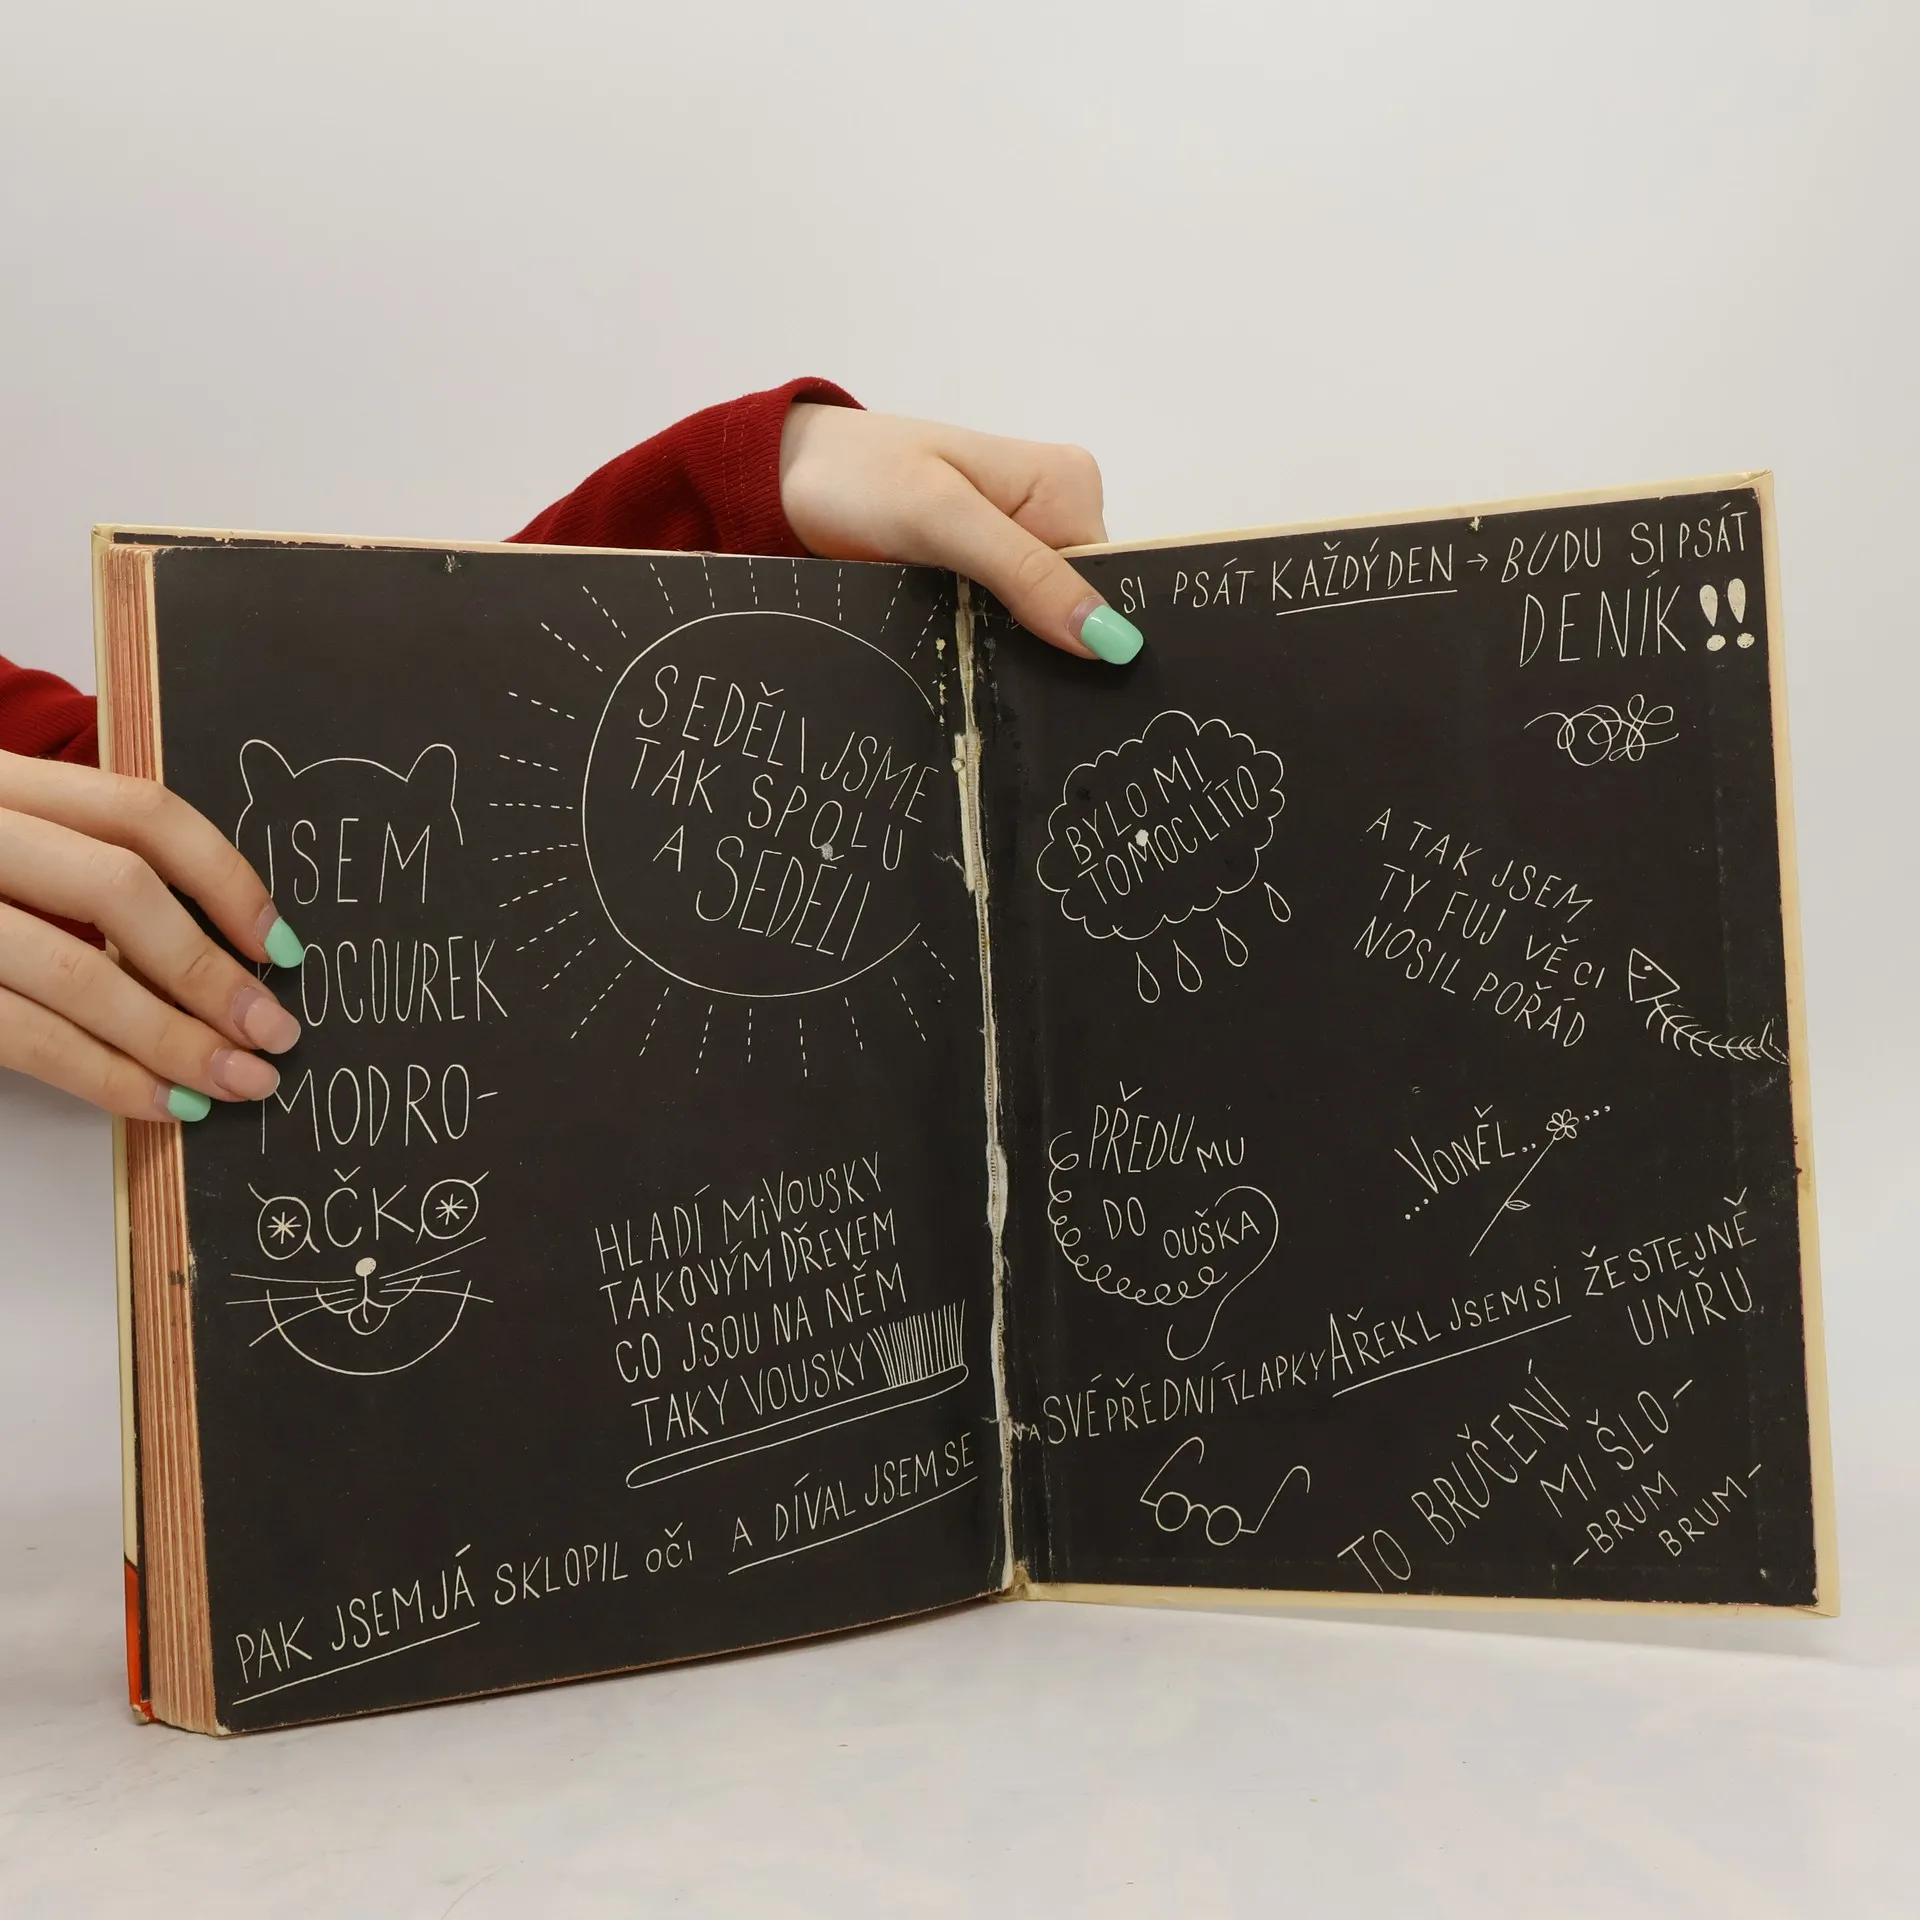 JSEM
OCOUREK
MODRO-
OČKO
SEDĚLI JSME
TAK SPOLU
A SEDĚLI
HLADÍ MI VOUSKY
TAKOVÝM DŘEVEM
CO JSOU NA NĚM
TAKY VOUSKY
PAK JSEM JÁ SKLOPIL OČI A DÍVAL JSEM SE
SI PSÁT KAŽDÝ DEN → BUDU SI PSÁT
DENÍK!!
BYLO MI
TOMOCLÍTO
A TAK JSEM
TY FUJ VĚCI
NOSIL POŘÁD
PŘEDU MU
DO OUŠKA
...VONĚL.....
NA SVÉ PŘEDNÍ TLAPKY A ŘEKL JSEM SI ŽE STEJNĚ
UMŘU
TO BRUČENÍ
MI ŠLO -
-BRUM
BRUM-